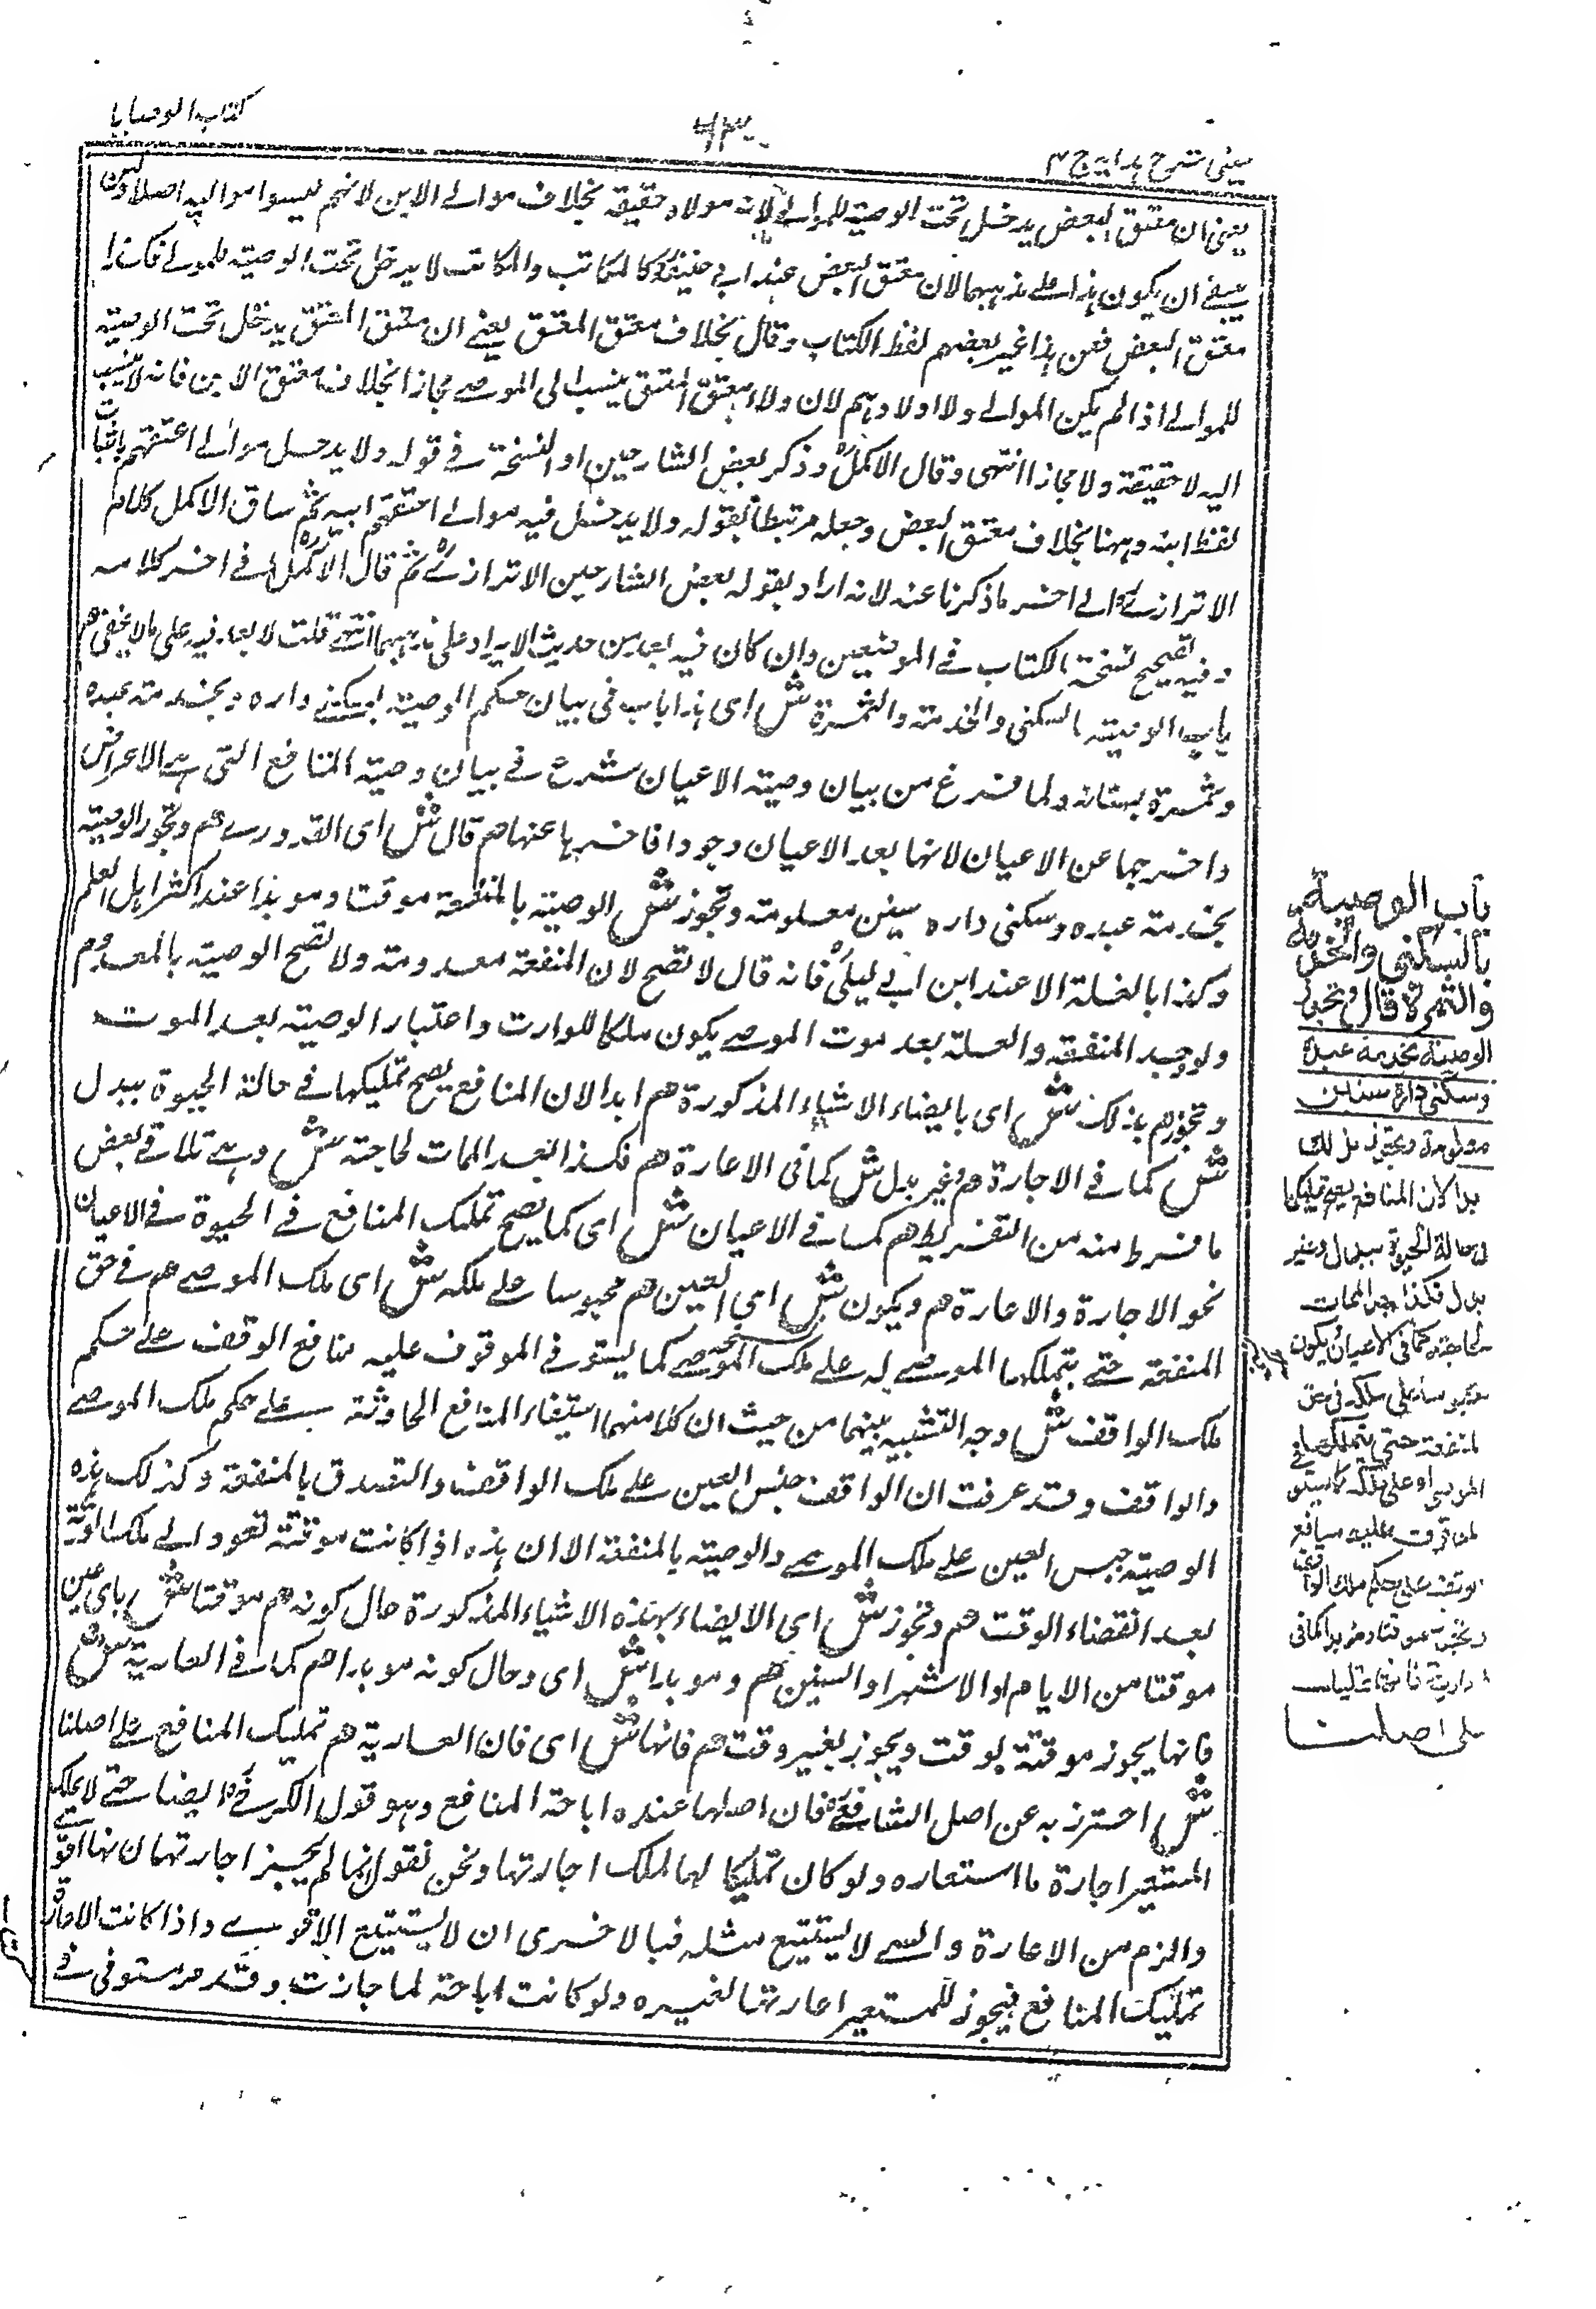 كتاب الوصايا
٦٣٠
عيني شرح هدايه ج ٤
يعني ان معتق البعض يدخل تحت الوصية للموالي لانه مولاه حقيقة بخلاف موالي الابن لانهم ليسوا مواليه اصلا ولكن
ينبغي ان يكون هذا على مذهبهما لان معتق البعض عند ابي حنيفة كالمكاتب والمكاتب لا يدخل تحت الوصية للمولى فكذا
معتق البعض فعن هذا غير بعضهم لفظ الكتاب وقال بخلاف معتق المعتق يعني ان معتق المعتق يدخل تحت الوصية
للموالي اذا لم يكن الموالي ولا اولادهم لان ولاء معتق المعتق ينسب الى الموصي مجازا بخلاف معتق الابن فانه لا ينسب
اليه لا حقيقة ولا مجازا انتهى وقال الاكمل وذكر بعض الشارحين ان النسخة في قوله ولا يدخل موالي اعتقهم باثبات
لفظ ابنه وههنا بخلاف معتق البعض وجعله مرتبطا بقوله ولا يدخل فيه موالي اعتقهم ابيه ثم ساق الاكمل كلام
الاترازي الى اخر ما ذكرنا عنه لانه اراد بقوله بعض الشارحين الاترازي ثم قال الاكمل في اخر كلامه
وفيه تصحيح نسخة الكتاب في الموضعين وان كان فيه بعد من حديث الايراد على مذهبهما انتهى قلت لا بعد فيه على ما لا يخفى هم
باب الوصية بالسكنى والخدمة والثمرة ش اي هذا باب في بيان حكم الوصية بسكنى داره وبخدمة عبده
وثمرة بستانه ولما فرغ من بيان وصية الاعيان شرع في بيان وصية المنافع التي هي الاعراض
واخرجها عن الاعيان لانها بعد الاعيان وجودا فاخرها عنها هم قال ش اي القدوري هم وتجوز الوصية
بخدمة عبده وسكنى داره سنين معلومة وتجوز ش الوصية بالمنفعة موقتا وموبدا عند اكثر اهل العلم
وكذا بالغلة الا عند ابن ابي ليلى فانه قال لا تصح لان المنفعة معدومة ولا تصح الوصية بالمعدوم
ولوجود المنفعة والغلة بعد موت الموصي يكون ملكا للوارث واعتبار الوصية بعد الموت
وتجوز هم بذلك ش اي بايضاء الاشياء المذكورة هم ابدا لان المنافع يصح تمليكها في حالة الحيوة ببدل
ش كما في الاجارة هم وغير بدل ش كما في الاعارة هم فكذا بعد الممات لحاجته ش وهي تلافي بعض
ما فرط منه من التفريط هم كما في الاعيان ش اي كما يصح تمليك المنافع في الحيوة في الاعيان
نحو الاجارة والاعارة هم ويكون ش اي العين هم محبوسا على ملكه ش اي ملك الموصي هم في حق
المنفعة حتى يتملكها الموصى له على ملك الموصي كما يستوفي الموقوف عليه منافع الوقف على حكم
ملك الواقف ش وجه التشبيه بينهما من حيث ان كلا منهما استيفاء المنافع الحادثة على حكم ملك الموصي
والواقف وقد عرفت ان الواقف حبس العين على ملك الواقف والتصدق بالمنفعة وكذلك هذه
الوصية حبس العين على ملك الموصي والوصية بالمنفعة الا ان هذه اذا كانت موقتة تعود الى ملك الورثة
بعد انقضاء الوقت هم وتجوز ش اي الايضاء بهذه الاشياء المذكورة حال كونه هم موقتا ش باي عين
موقتا من الايام او الاشهر او السنين هم وموبدا ش اي وحال كونه موبدا هم كما في العارية ش
فانها يجوز موقتة بوقت ويجوز بغير وقت هم فانها ش اي فان العارية هم تمليك المنافع على اصلنا
ش احترز به عن اصل الشافعي فان اصلها عنده اباحة المنافع وهو قول الكرخي ايضا حتى لا يملك
المستعير اجارة ما استعاره ولو كان تمليكا لها لملك اجارتها ونحن نقول انما لم يجز اجارتها لانها اقوى
والزم من الاعارة والشي لا يستتبع مثله فبالاحرى ان لا يستتبع الاقوى واذا كانت الاعارة
تمليك المنافع فيجوز للمستعير اعارتها لغيره ولو كانت اباحة لما جازت وقد مر مستوفى في
باب الوصية
بالسكنى والخدمة
والثمرة قال وتجوز
الوصية بخدمة عبده
وسكنى داره سنين
معلومة وتجوز بذلك
ابدا لان المنافع يصح تمليكها
في حالة الحيوة ببدل وغير
بدل فكذا بعد الممات
لحاجته كما في الاعيان ويكون
محبوسا على ملكه في حق
المنفعة حتى يتملكها
الموصى له على ملكه كما يستوفي
الموقوف عليه منافع
الوقف على حكم ملك الواقف
وتجوز موقتا وموبدا كما في
العارية فانها تمليك
على اصلنا